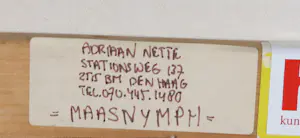 ADRIAAN NETTE
STATIONSWEG 137
2515 BM DEN HAAG
TEL. 070.445.1480
= MAASNYMPH =
kun